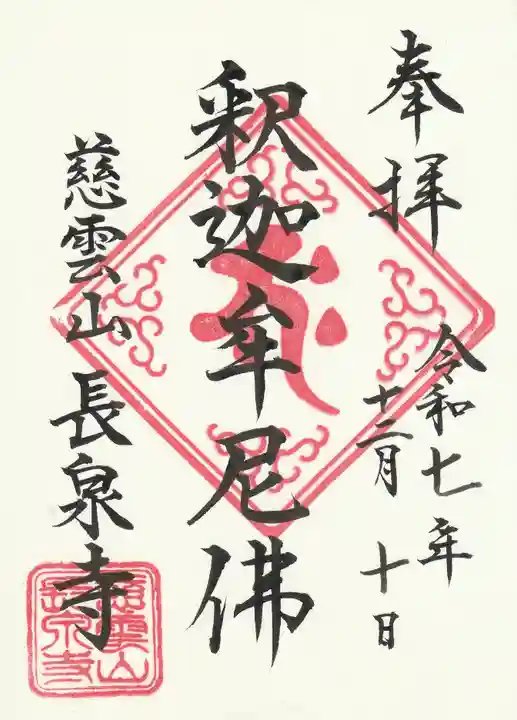 奉拝
令和七年
十二月 十日
釈迦牟尼佛
慈雲山 長泉寺
慈雲山
長泉寺